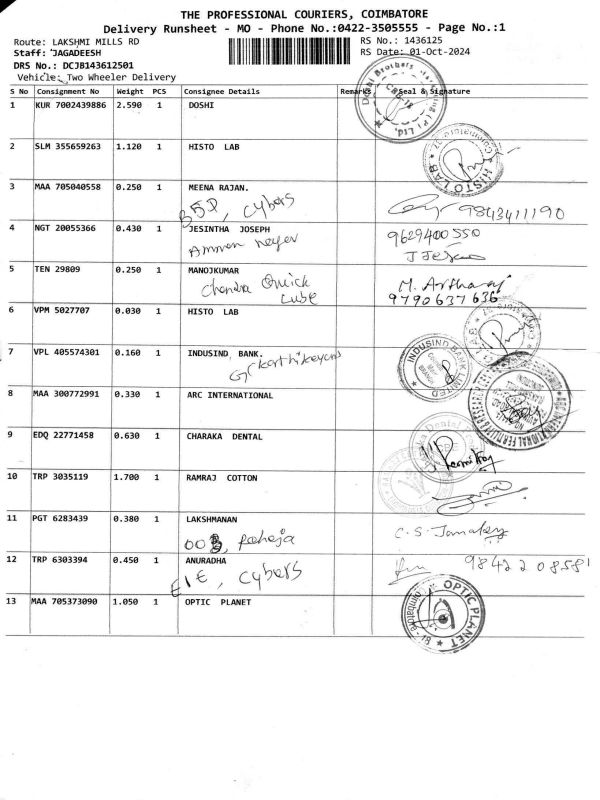 THE PROFESSIONAL COURIERS, COIMBATORE
Delivery Runsheet - MO - Phone No.:0422-3505555 - Page No.:1
Route: LAKSHMI MILLS RD RS No.: 1436125
Staff: JAGADEESH RS Date: 01-Oct-2024
DRS No.: DCJB143612501
Vehicle: Two Wheeler Delivery
S No Consignment No Weight PCS Consignee Details Remarks Seal & Signature
1 KUR 7002439886 2.590 1 DOSHI
Doshi Brothers (P) Ltd.
2 SLM 355659263 1.120 1 HISTO LAB
HISTO LAB
3 MAA 705040558 0.250 1 MEENA RAJAN.
B5D, cybers 9843411190
4 NGT 20055366 0.430 1 JESINTHA JOSEPH 9629400550
Amman nager
5 TEN 29809 0.250 1 MANOJKUMAR
Chendra Quick M. Artharaj
Lube 9790637636
6 VPM 5027707 0.030 1 HISTO LAB
7 VPL 405574301 0.160 1 INDUSIND BANK.
INDUSIND BANK LIMITED
8 MAA 300772991 0.330 1 ARC INTERNATIONAL
9 EDQ 22771458 0.630 1 CHARAKA DENTAL
10 TRP 3035119 1.700 1 RAMRAJ COTTON
11 PGT 6283439 0.380 1 LAKSHMANAN
12 TRP 6303394 0.450 1 ANURADHA 98422 08581
E1E, cybers
13 MAA 705373090 1.050 1 OPTIC PLANET
OPTIC PLANET